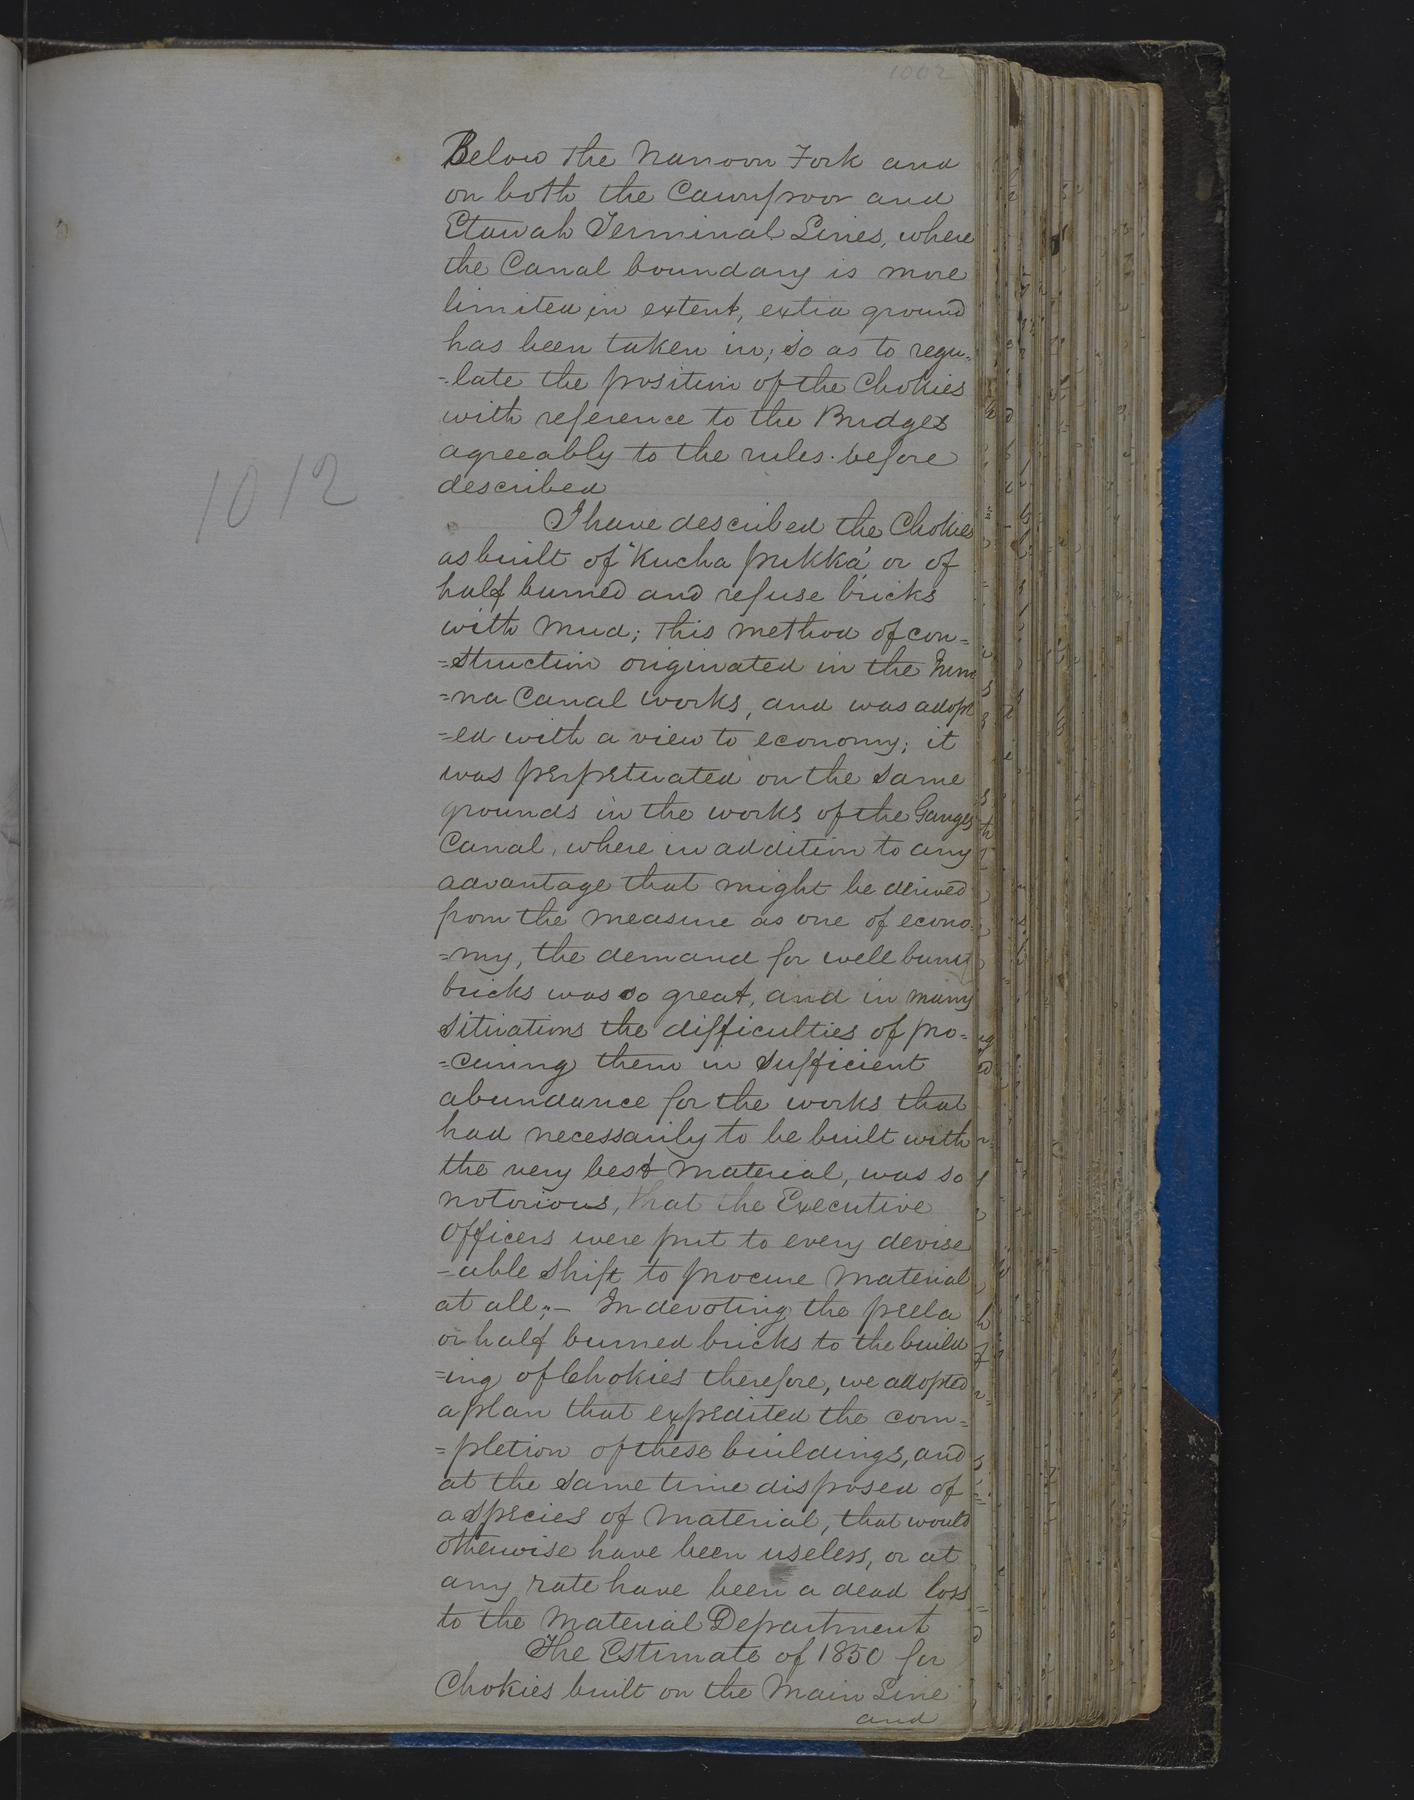 1002
Below the Nanoon Fork and
on both the Cawnpoor and
Etawah Terminal Lines, where
the Canal boundary is more
limited in extent, extra ground
has been taken in; so as to regu-
-late the position of the Chokies
with reference to the Bridges
agreeably to the rules before
described
1012
I have described the Chokies
as built of "Kucha pukka", or of
half burned and refuse bricks
with Mud; this method of con=
=struction originated in the Jum
=na Canal works, and was adopt
=ed with a view to economy; it
was perpetuated on the same
grounds in the works of the Ganges
Canal, where in addition to any
advantage that might be derived
from the measure as one of econo
=my, the demand for well burnt
bricks was so great, and in many
situations the difficulties of pro=
=curing them in sufficient
abundance for the works that
had necessarily to be built with
the very best material, was so
notorious, that the Executive
Officers were put to every devise
=able shift to procure Material
at all;- In devoting the peela
or half burned bricks to the build
=ing of Chokies therefore, we adopted
a plan that expedited the com=
=pletion of these buildings, and
at the same time disposed of
a species of Material, that would
otherwise have been useless, or at
any rate have been a dead loss
to the Material Department
The Estimate of 1850 for
Chokies built on the Main Line
and